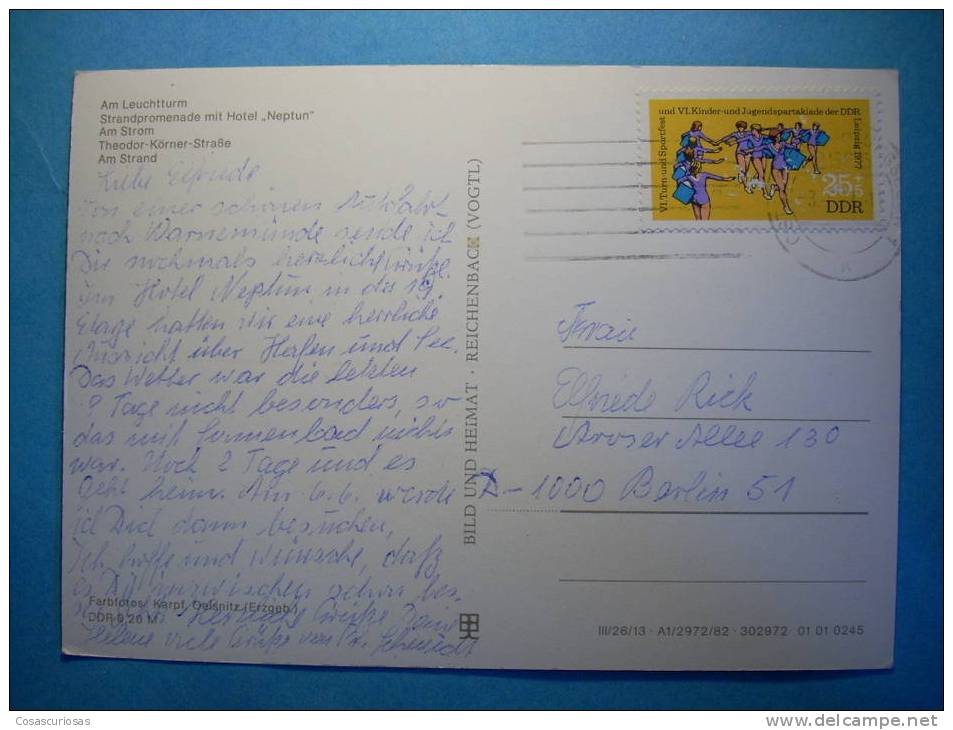 Am Leuchtturm
Strandpromenade mit Hotel „Neptun"
Am Strom
Theodor-Körner-Straße
Am Strand
Liebe Elfriede
Von einer schönen
nach Warnemünde sende ich
Dir nochmals herzliche Grüße.
Im Hotel Neptun in der 19
Etage hatten wir eine herrliche
Aussicht über Hafen und See.
Das Wetter war die letzten
Tage nicht besonders, so
das mit Sonnenbad nichts
war. Noch 2 Tage und es
geht heim. Am 6.6. werde
ich Dich dann besuchen,
Ich hoffe und wünsche, daß
es Dir inzwischen schon bes-
Herzliche Grüße Deine
Helene viele Grüße von Fr. Schmidt
Farbfotos: Karpf, Oelsnitz (Erzgeb.)
DDR 0,20 M
BILD UND HEIMAT · REICHENBACH (VOGTL)
VI. Turn- und Sportfest
und VI. Kinder- und Jugendspartakiade der DDR
Leipzig 1977
25+5
DDR
Frau
Elfriede Rick
Aroser Allee 130
1000 Berlin 51
III/26/13 · A1/2972/82 · 302972 01 01 0245
Cosascuriosas
www.delcampe.net